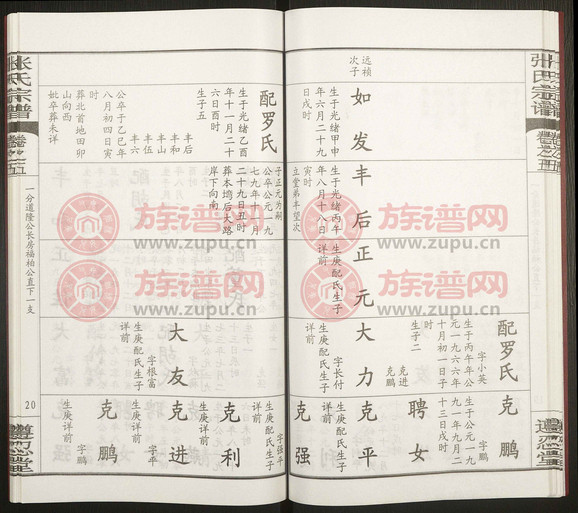 张氏宗谱
卷之五
遵忍堂
远祯
次子
如发
生于光绪甲申
年六月二十九
日戌时
配罗氏
生于光绪乙酉
年十一月二十
六日酉时
生子五
丰后
丰和
丰山
丰伍
丰六
公卒于乙巳年
八月初四日寅
时
葬北首地田卯
山向酉
妣卒葬未详
丰后
生于光绪丙午
年八月十八日
立堂弟丰望次
子正元为嗣
公卒公元一九
七九年十一月
二十九日丑时
葬本塆后大路
岸下向南
正元
生庚配氏生子
详前
配罗氏
字小英
生于丙午年公
元一九六六年
十月初一日子
时
生子二
克进
克鹏
大力
字长付
生庚配氏生子
详前
大友
字根富
生庚配氏生子
详前
克鹏
字鹏
生公元一九
九一年九月二
十三日戌时
聘女
克平
克强
字强平
生庚配氏生子
详前
克利
生庚详前
克进
字平
生庚详前
克鹏
字鹏
生庚详前
一分道隆公长房福柏公直下一支
20
张氏宗谱
卷之五
遵忍堂
族谱网
www.zupu.cn
族谱网
www.zupu.cn
族谱网
www.zupu.cn
族谱网
www.zupu.cn